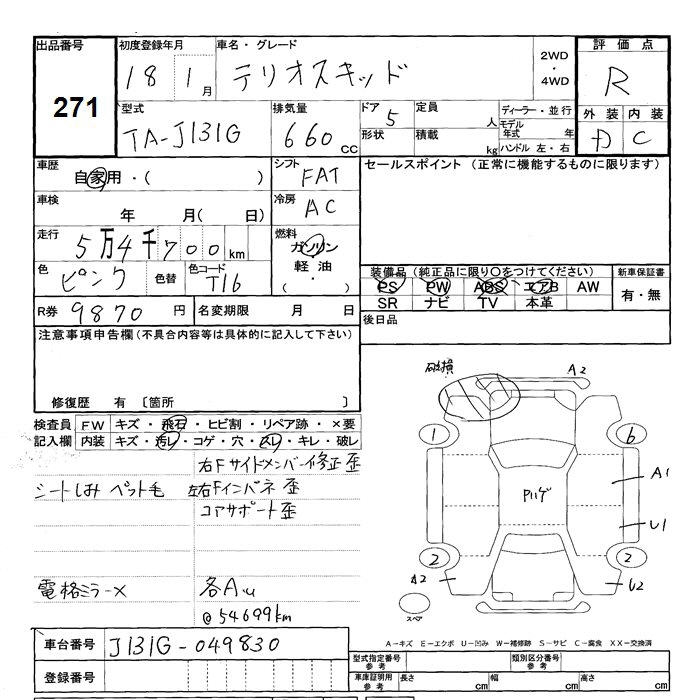 出品番号
271
初度登録年月
18 1月
車名・グレード
テリオスキッド
2WD
・
4WD
評価点
R
外装 内装
D C
型式
TA-J131G
排気量
660cc
ドア 5
定員 人
形状
積載 kg
ディーラー・並行
モデル年式 年
ハンドル 左・右
車歴
自家用・( )
シフト
FAT
車検
年 月( 日)
冷房
AC
走行
5万4千700km
燃料
ガソリン
軽油
・( )
色
ピンク
色替
色コード
T16
R券 9870円
名変期限 月 日
セールスポイント (正常に機能するものに限ります)
装備品 (純正品に限り○をつけてください)
PS PW ABS エアB AW
SR ナビ TV 本革
新車保証書
有・無
後日品
注意事項申告欄(不具合内容等は具体的に記入して下さい)
修復歴 有 [箇所 ]
検査員記入欄
FW キズ・飛石・ヒビ割・リペア跡・×要
内装 キズ・汚レ・コゲ・穴・スレ・キレ・破レ
右Fサイドメンバー修正歪
シートしみ ペット毛 左右Fインパネ 歪
コアサポート歪
電格ミラーX 各A,u
@54699km
破損
A2
1
6
A1
U1
2
2
A2
U2
スペア
A-キズ E-エクボ U-凹み W-補修跡 S-サビ C-腐食 XX-交換済
車台番号 J131G-049830
登録番号
型式指定番号 参考
類別区分番号 参考
車庫証明用 参考
長さ cm
幅 cm
高さ cm